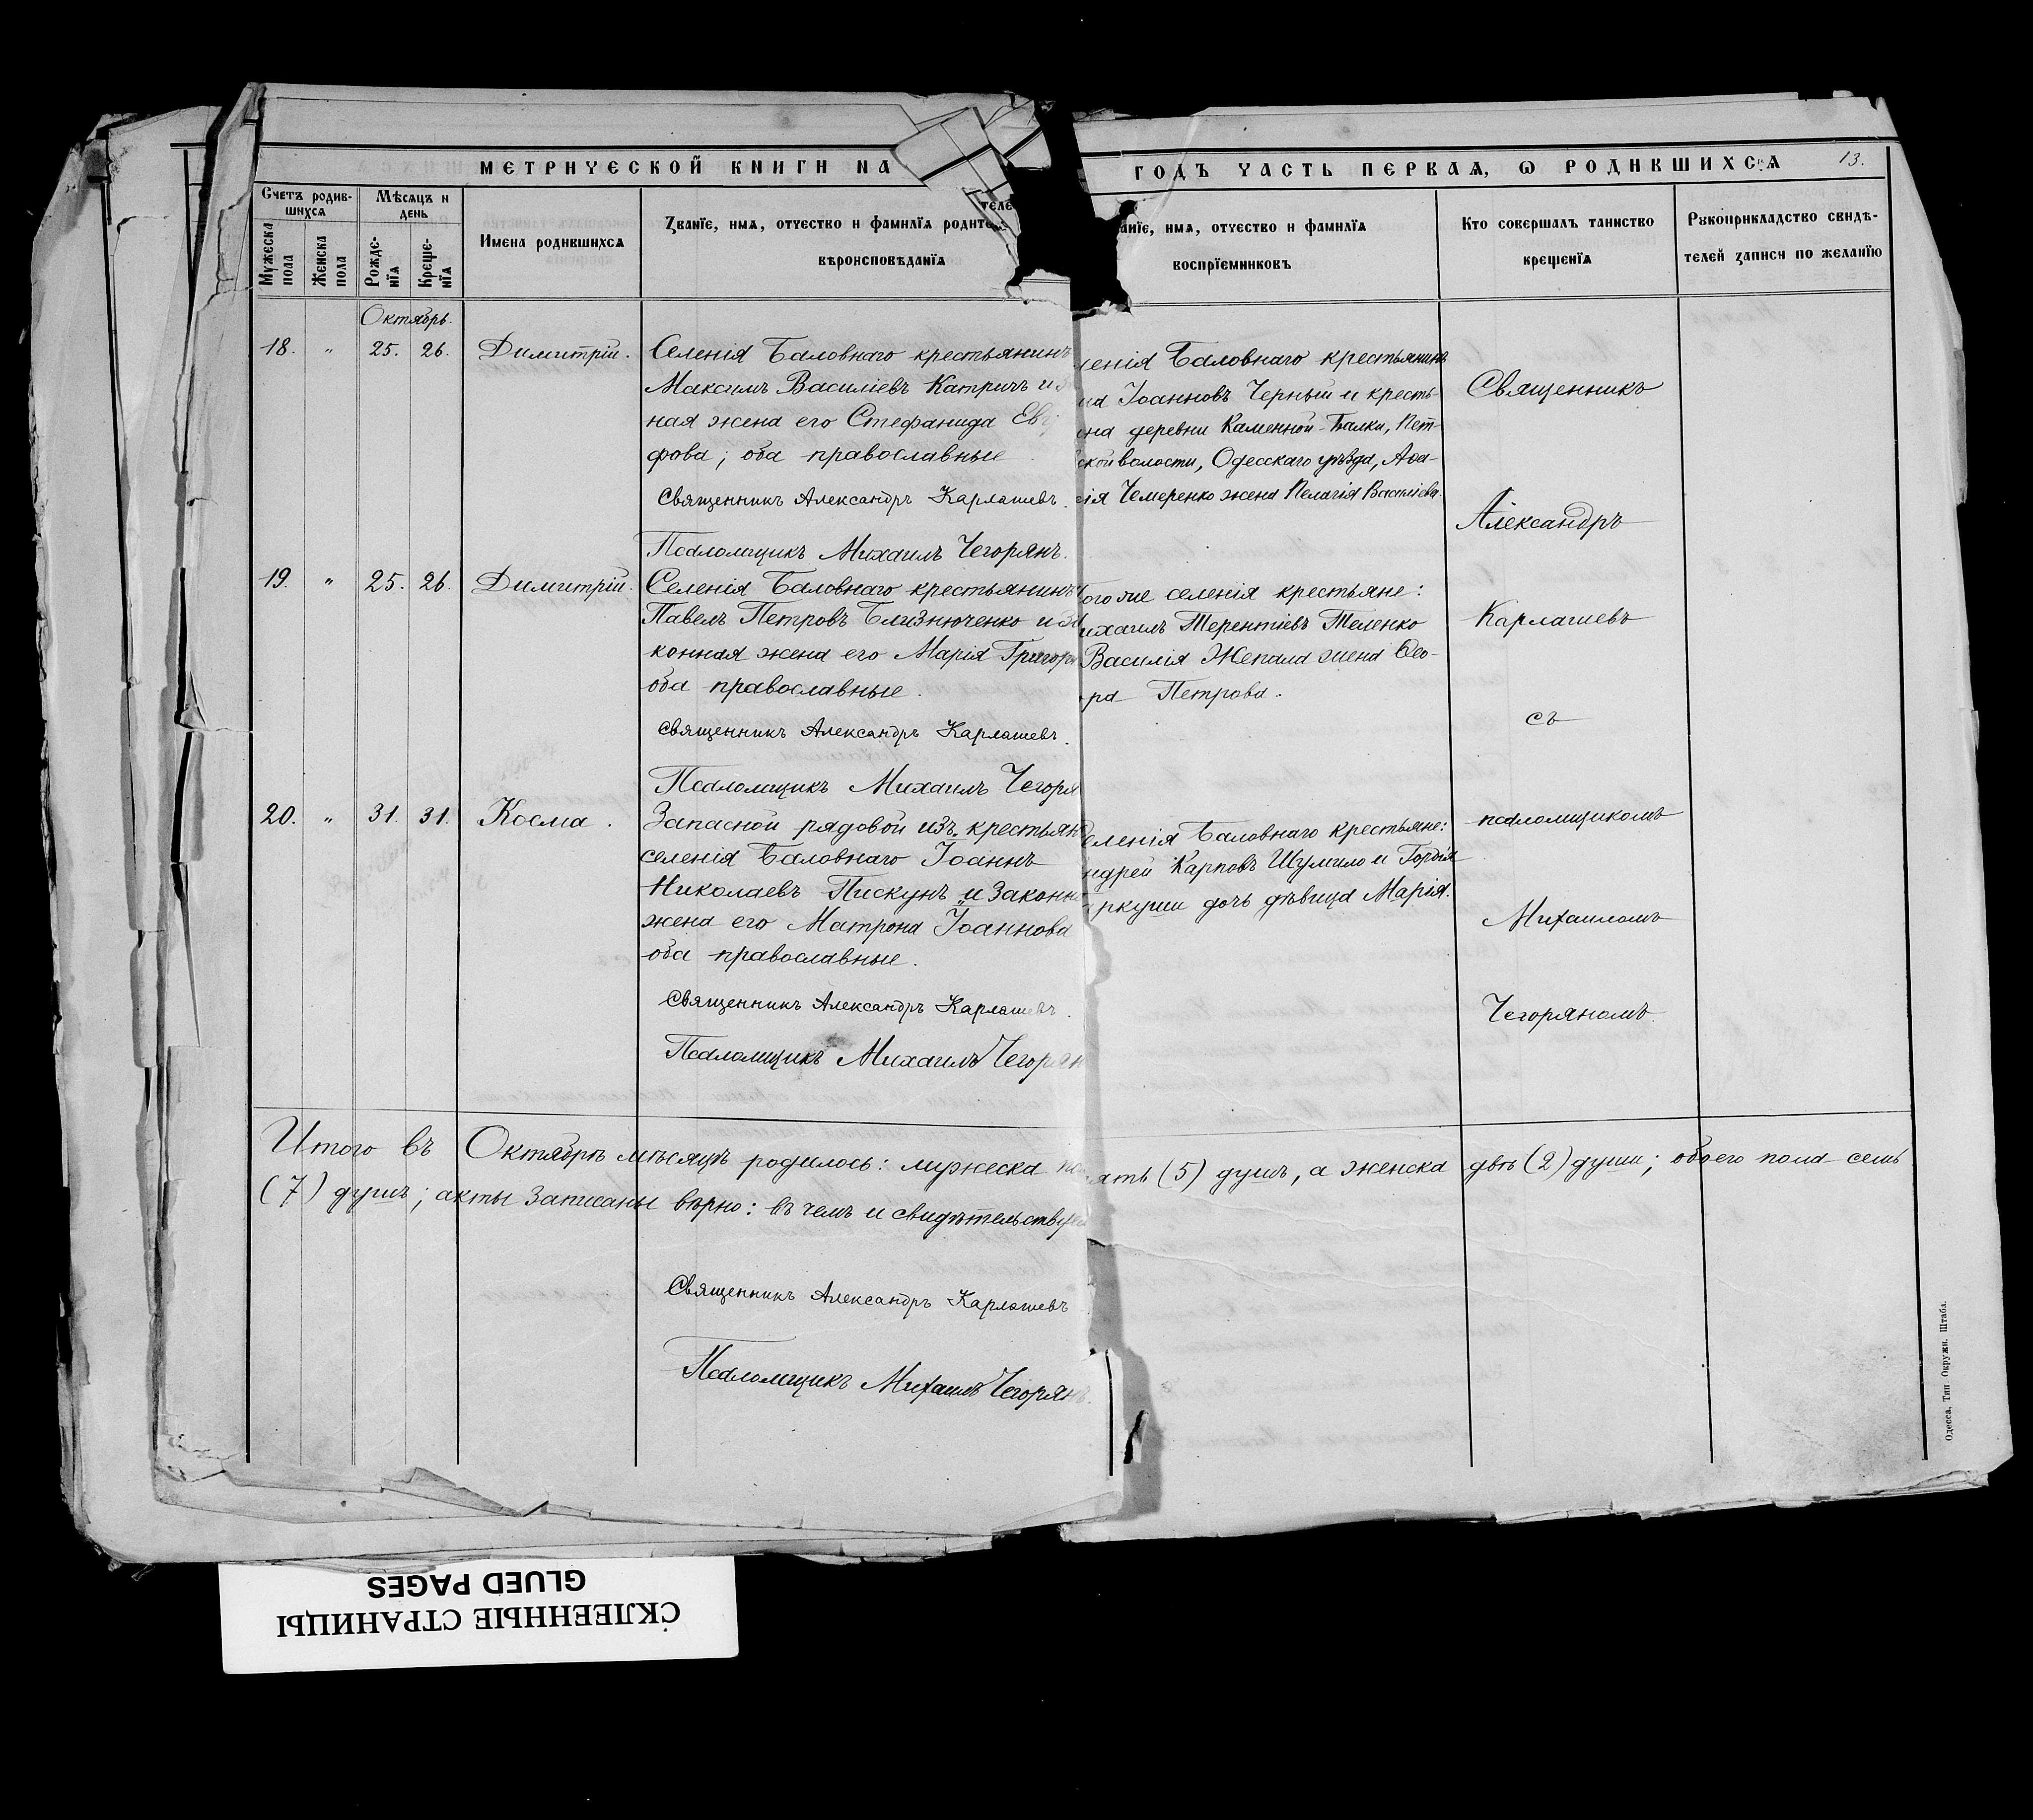 МЕТРИЧЕСКОЙ КНИГИ НА
ГОДЪ ЧАСТЬ ПЕРВАЯ, Ѡ РОДИВШИХСЯ
13.
Счетъ родив-
шихся
Мужеска пола
Женска пола
Мѣсяцъ и
день
Рожде-
нїя
Креще-
нїя
Имена родившихся
Званїе, имя, отчество и фамилїя родите
теле
вѣроисповѣданїя
анїе, имя, отчество и фамилїя
воспрїемниковъ
Кто совершалъ таинство
крещенїя
Рукоприкладство свидѣ-
телей записи по желанїю
Октябрь.
18. " 25. 26. Димитрій.
Селенія Баловнаго крестьянинъ
Максимъ Василіевъ Катричъ и з
ная жена его Стефанида Ев
фова; оба православные
Священникъ Александръ Карлашевъ.
Псаломщикъ Михаилъ Чегорянъ.
ленія Баловнаго крестьянинъ
на Іоанновъ Черный и кресть-
ина деревни Каменной-Балки, Пет-
ской волости, Одесскаго уѣзда, Аѳа-
сія Чемеренко жена Пелагія Василіева.
19. " 25. 26. Димитрій.
Селенія Баловнаго крестьянинъ
Павелъ Петровъ Близнюченко и за
конная жена его Марія Григорь
оба православные.
Священникъ Александръ Карлашевъ.
Псаломщикъ Михаилъ Чегоря
ого же селенія крестьяне:
ихаилъ Терентіевъ Теленко
Василія Жепала жена Ѳео-
ра Петрова.
20. " 31. 31. Косма.
Запасной рядовой изъ крестьян
селенія Баловнаго Іоаннъ
Николаевъ Пискунъ и законн
жена его Матрона Іоаннова
оба православные.
Священникъ Александръ Карлашевъ.
Псаломщикъ Михаилъ Чегорян
еленія Баловнаго крестьяне:
ндрей Карповъ Шумило и Гордія
ркуши дочь дѣвица Марія.
Священникъ
Александръ
Карлашевъ
съ
псаломщикомъ
Михаиломъ
Чегоряномъ.
Итого въ Октябрѣ мѣсяцѣ родилось: мужеска по
ять (5) душъ, а женска двѣ (2) души; обоего пола семь
(7) душъ; акты записаны вѣрно: въ чемъ и свидѣтельствуе
Священникъ Александръ Карлашевъ
Псаломщикъ Михаилъ Чегорянъ.
Одесса, Тип Окружн. Штаба.
СКЛЕЕННЫЕ СТРАНИЦЫ
GLUED PAGES